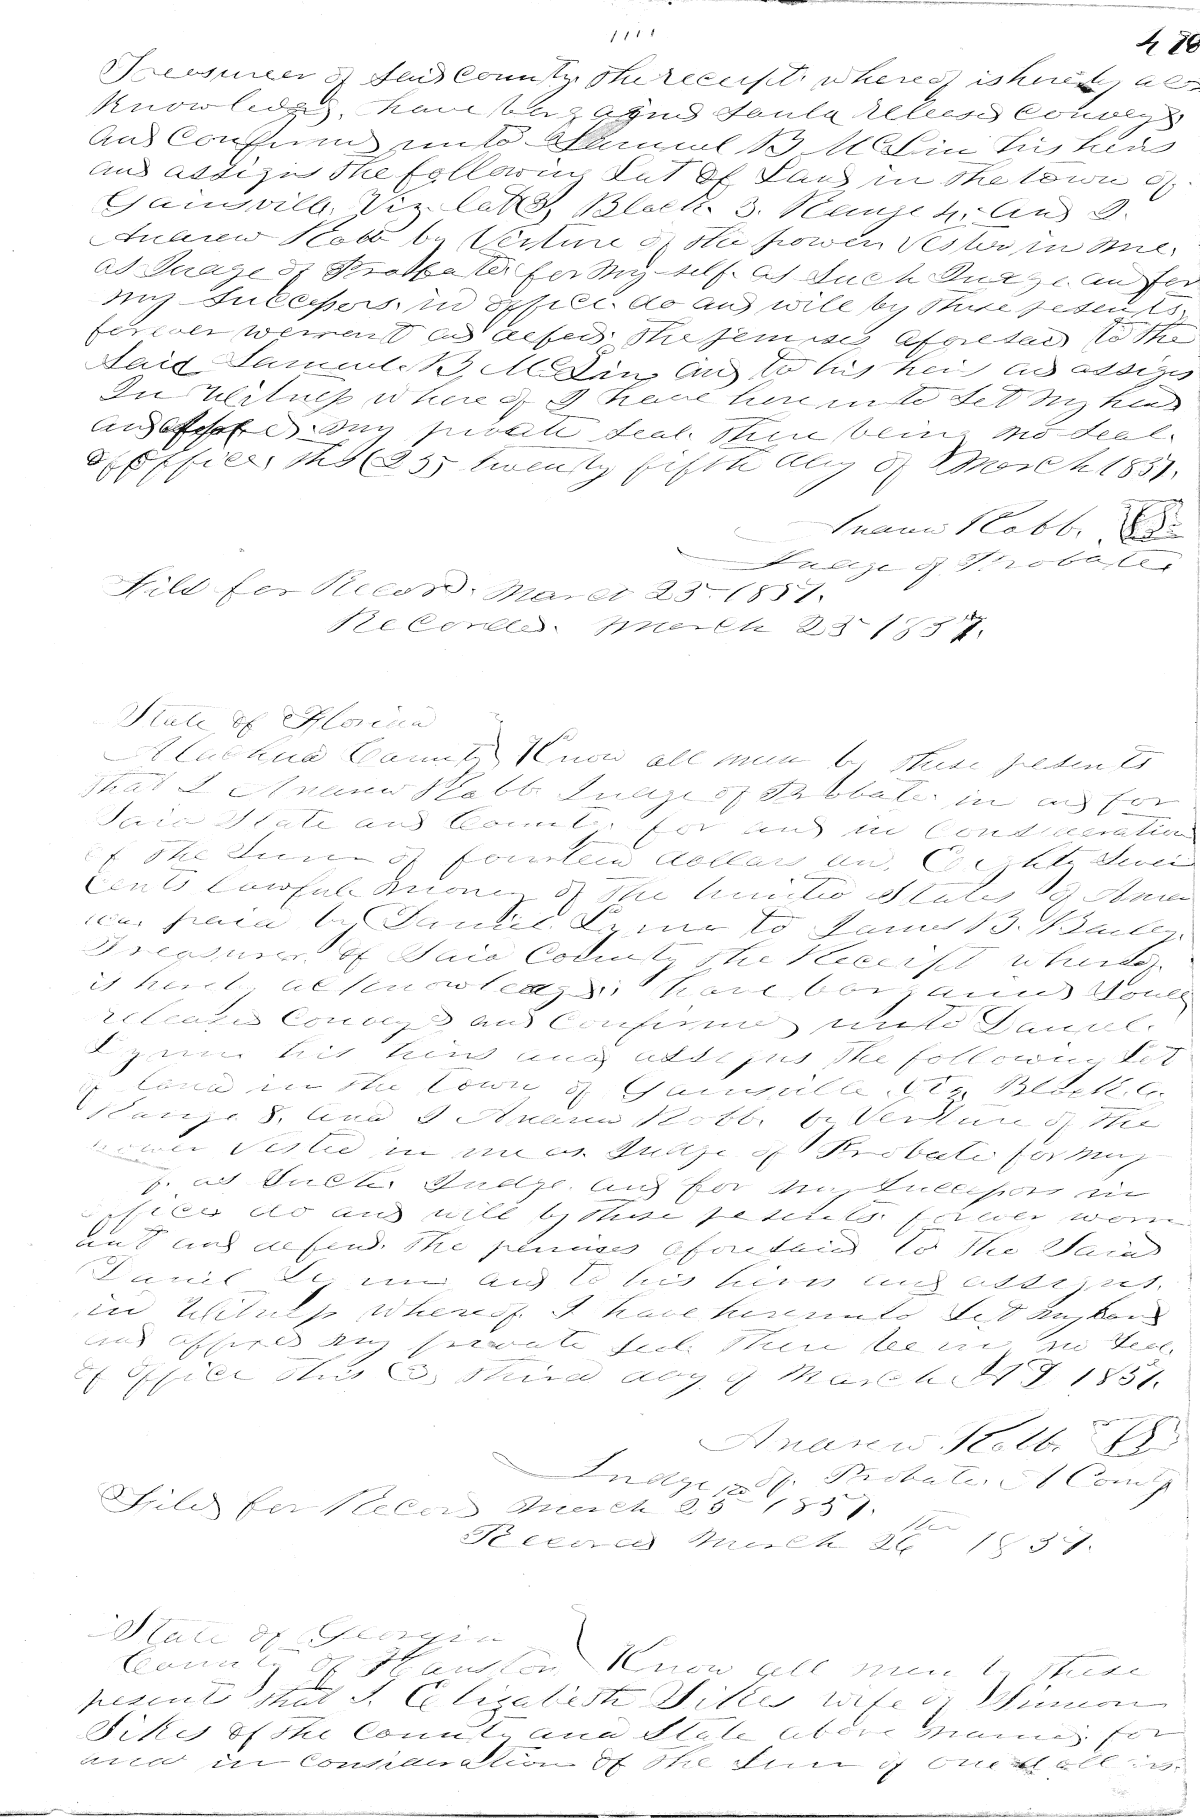 478
Treasurer of said County. the receipt. where of is hereby ac
knowledged, have bargained sould released conveyed
and confirmed unto Samuel B McLin his heirs
and assigns the following Lot of Land in the town of
Gainsvilla. Viz. Lot 3, Block. 3. Range 4. And I.
Andrew Robb by Verture of the power Vested in me.
as Judge of Probate for my self. as such Judge. and for
my successors. in office do and will by these presents
forever werrent and defend. the premises aforesaid to the
said Samuel. B McLin and to his heirs and assigns
In Witness where of I have here unto set my hand
and affixed my private seal. there being no seal.
of office, this (25) twenty fifth day of March 1857.
Andrew Robb.
Judge of Probate
Fild for Record. March 25 1857.
Recorded. March 25 1857.
State of Florida
Alachua County Know all men by these presents
that I Andrew Robb Judge of Probate in and for
said State and County for and in consideration
of the sum of fourteen dollars and Eighty seven
cents lawfull money of the United States of Amer
ica. paid by Daniel Lynn to James B. Bailey.
Treasurer of said County the Receipt whereof.
is hereby acknowledged have bargained sould
released conveyed and confirmed unto Daniel.
Lynn his heirs and assigns the following Lot
of land in the town of Gainsville. Viz. Block 6.
Range 8. And I Andrew Robb. by Verture of the
power Vested in me as. Judge of Probate for my
as such. Judge. and for my successors in
office do and will by these presents forever worr
ant and defend. the premises aforesaid to the said
Daniel Lynn and to his heirs and assigns.
in Witness whereof. I have hereunto set my hand
and affixed my private seal. there being no seal.
of office this (3) third day of March A D 1857.
Andrew. Robb.
Judge of. Probate. A County
Filed for Record March 25 1857.
Record March 26th 1857.
State of Georgia
County of Houston Know all men by these
presents that I. Elizabeth Sikes wife of
Sikes of the County and State above named for
and in consideration of the sum of one dollars.